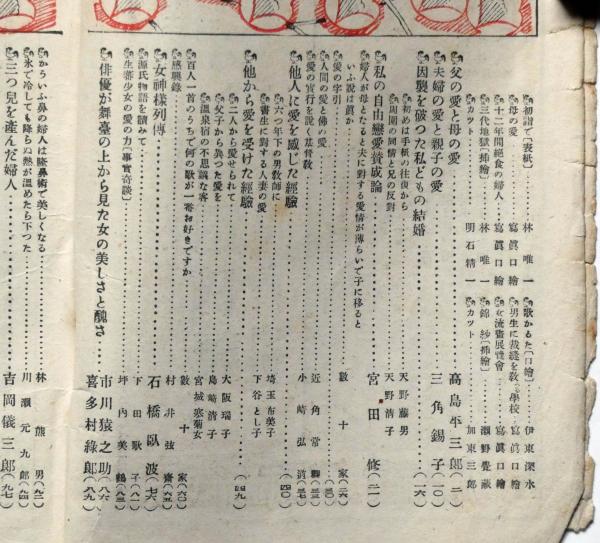 初詣で〔表紙〕…林唯一
母の愛…寫眞口繪
十二年間絕食の婦人…寫眞口繪
三代地獄〔挿繪〕…林唯一
カツト…明石精一
歌かるた〔口繪〕…伊東深水
男生に裁縫を敎る學校…寫眞口繪
女流畫展覽會…寫眞口繪
錦紗〔挿繪〕…瀨野覺藏
カツト…加東三郞
父の愛と母の愛…高島平三郞(二)
夫婦の愛と親子の愛…三角錫子(一〇)
因襲を破つた私どもの結婚…(一六)
初めは手紙の往復から…天野藤男
周圍の同情と兄の反對…天野淸子
私の自由戀愛賛成論…宮田修(二一)
婦人が母となると夫に對する愛情が薄らいで子に移ると
いふ說は眞か…數十家(二六)
愛の字引…(三〇)
人間の愛と佛の愛…近角常觀(三三)
愛の實行を說く基督敎…小崎弘道(三七)
他人に愛を感じた經驗…(四〇)
六つ年下の男敎師に…埼玉布美子
書生に對する人妻の愛…下谷とし子
他から愛を受けた經驗…(四九)
二人から愛せられて…大阪瑞子
父子から異つた愛を…島崎淸子
溫泉宿の不思議な客…宮城寒菊女
百人一首のうちで何の歌が一番お好きですか…數十家(六〇)
感興錄…村井弦齋(六五)
女神樣列傳…石橋臥波(七六)
源氏物語を讀みて…下田歌子(八一)
生蕃少女の愛の力〔事實奇談〕…坪內美鶴(八三)
俳優が舞臺の上から見た女の美しさと醜さ…市川猿之助(八六)
喜多村綠郞(八九)
かういふ鼻の婦人は隆鼻術で美しくなる…林熊男(九二)
氷で冷しても降らぬ熱が溫めたら下つた…川瀨元九郞(九四)
三つ兒を產んだ婦人…吉岡儀三郞(九七)